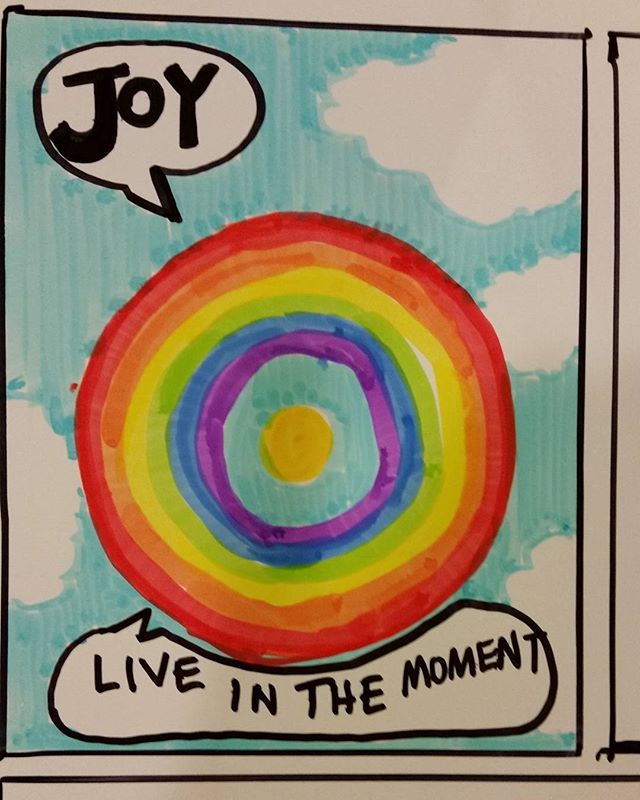 JOY
LIVE IN THE MOMENT